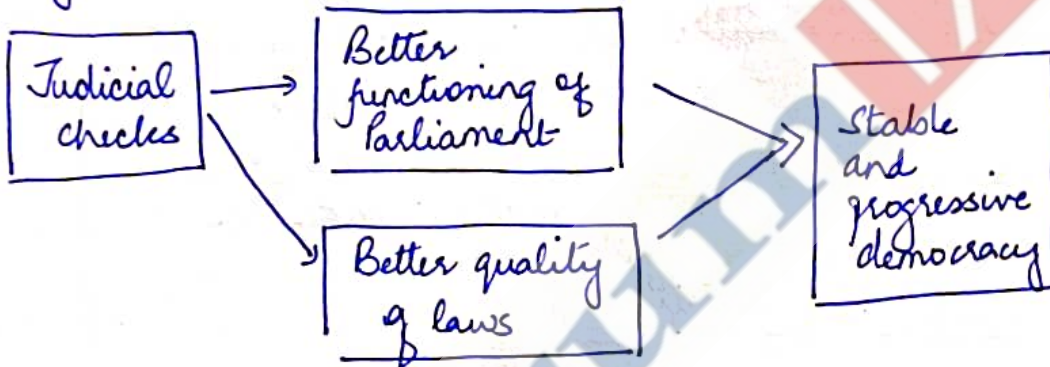 Judicial
checks
Better
functioning of
Parliament
Better quality
of laws
Stable
and
progressive
democracy